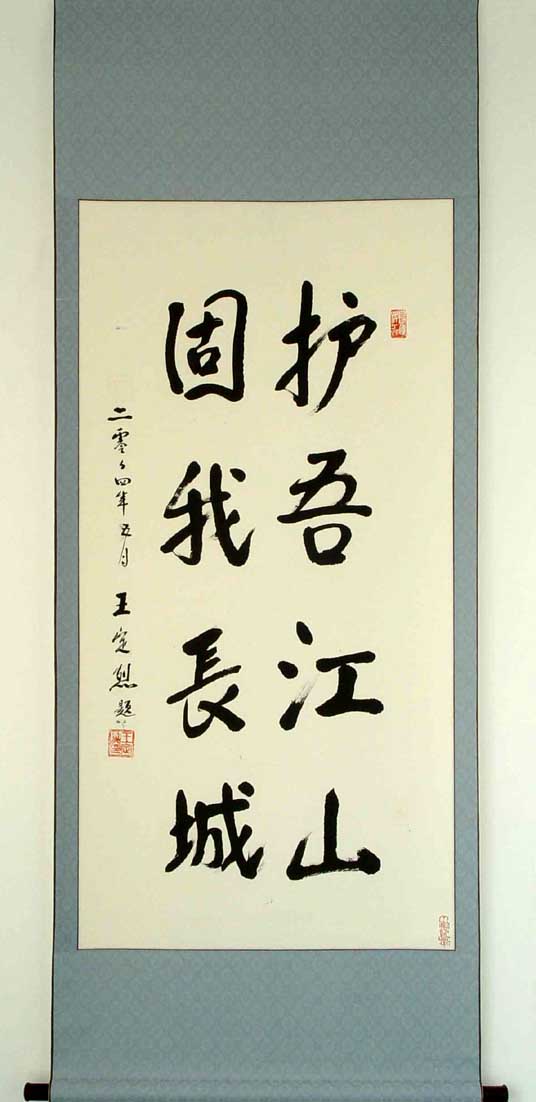 护吾江山
固我長城
二零零四年五月 王定烈 题